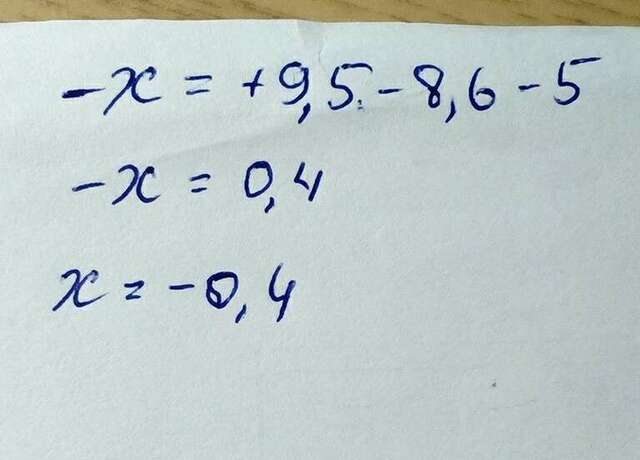 -x = +9,5 - 8,6 - 5
-x = 0,4
x = -0,4